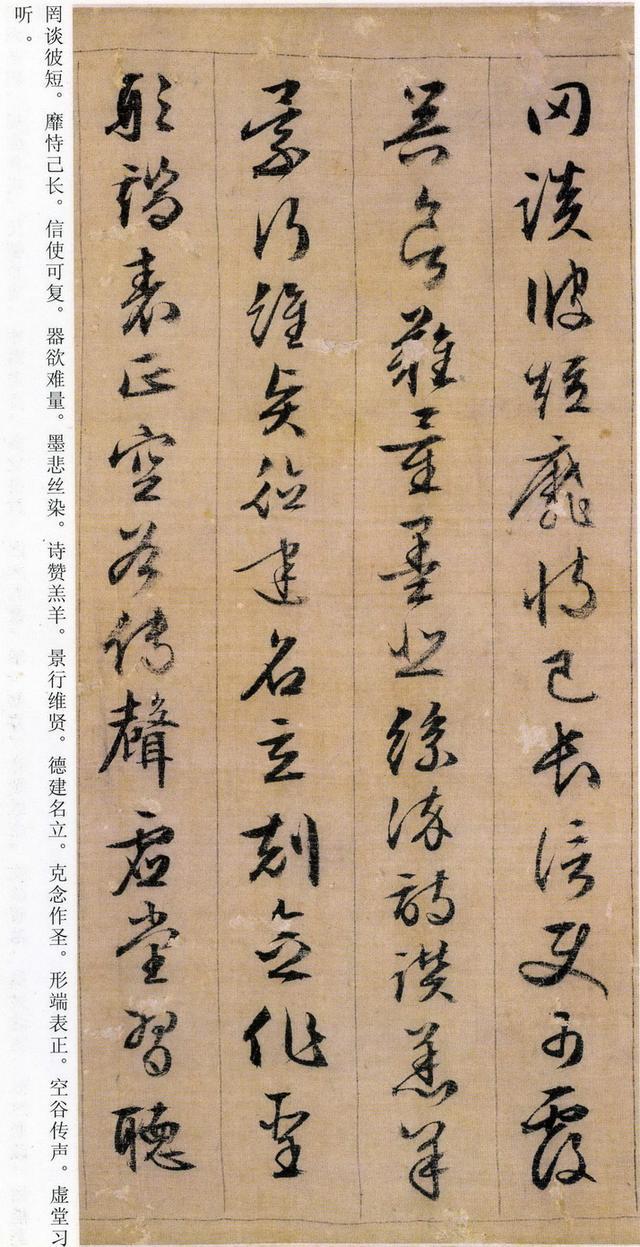 罔談彼短靡恃己長信使可覆
器欲難量墨悲絲染詩讚羔羊
景行維賢德建名立剋念作聖
形端表正空谷傳聲虛堂習聽
罔谈彼短。靡恃己长。信使可复。器欲难量。墨悲丝染。诗赞羔羊。景行维贤。德建名立。克念作圣。形端表正。空谷传声。虚堂习
听。